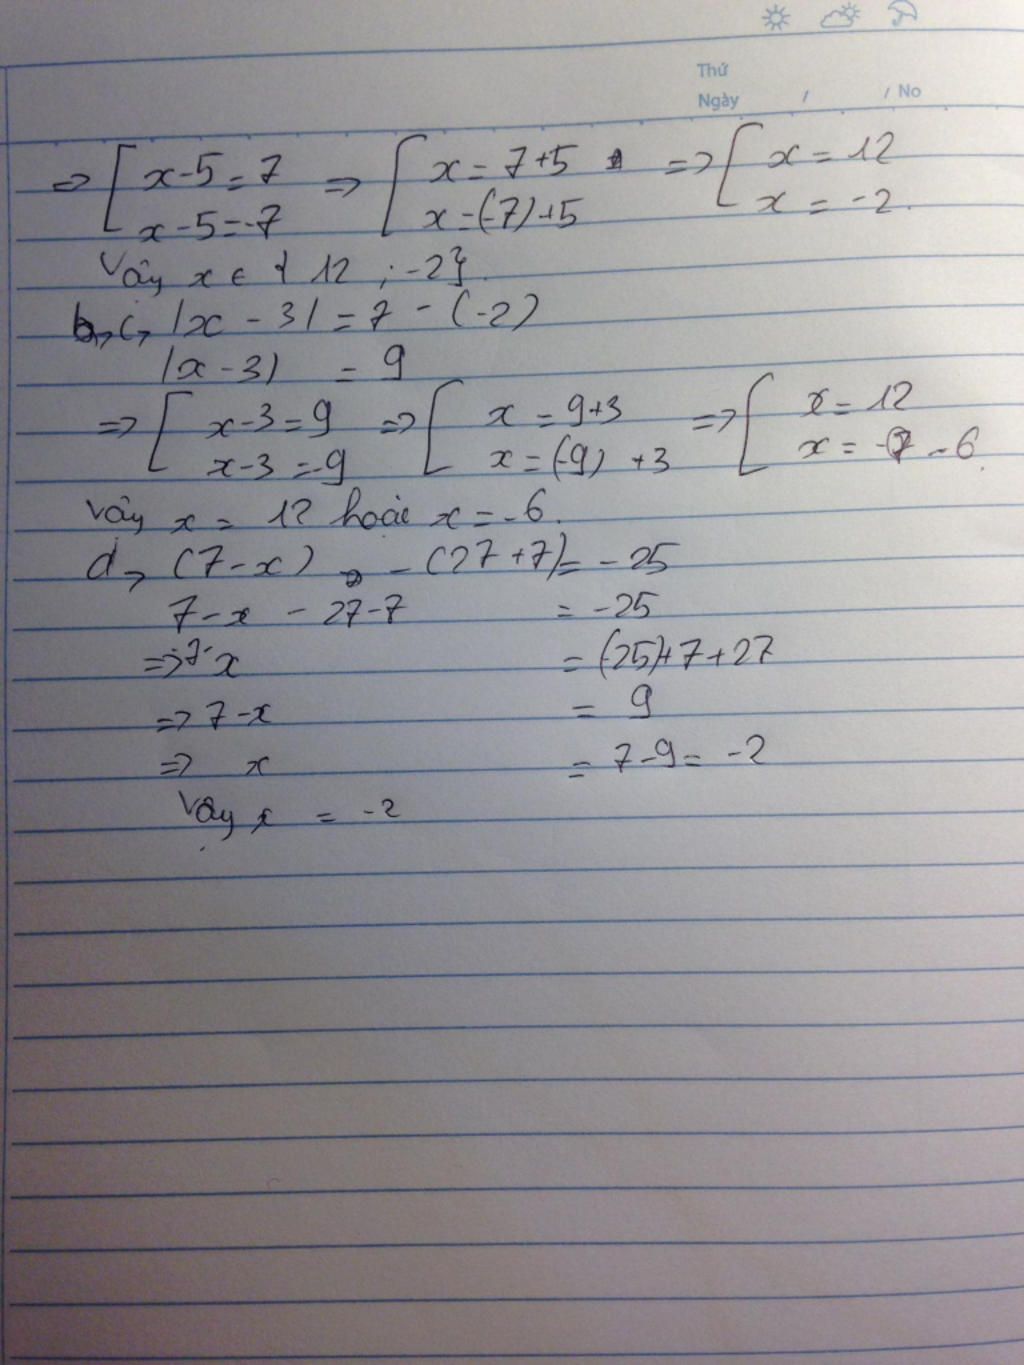 Thứ
Ngày / / No
=> [ x-5=7 => [ x=7+5 => [ x=12
x-5=-7 x=(-7)+5 x=-2.
Vây x ∈ { 12 ; -2}.
c, |x - 3| = 7 - (-2)
|x - 3| = 9
=> [ x-3=9 => [ x=9+3 => [ x=12
x-3=-9 x=(-9) +3 x= -6.
Vây x = 12 hoặc x=-6.
d, (7-x) - (27+7)= -25
7-x - 27-7 = -25
=> 7-x = (-25)+7+27
=> 7-x = 9
=> x = 7-9= -2
Vây x = -2